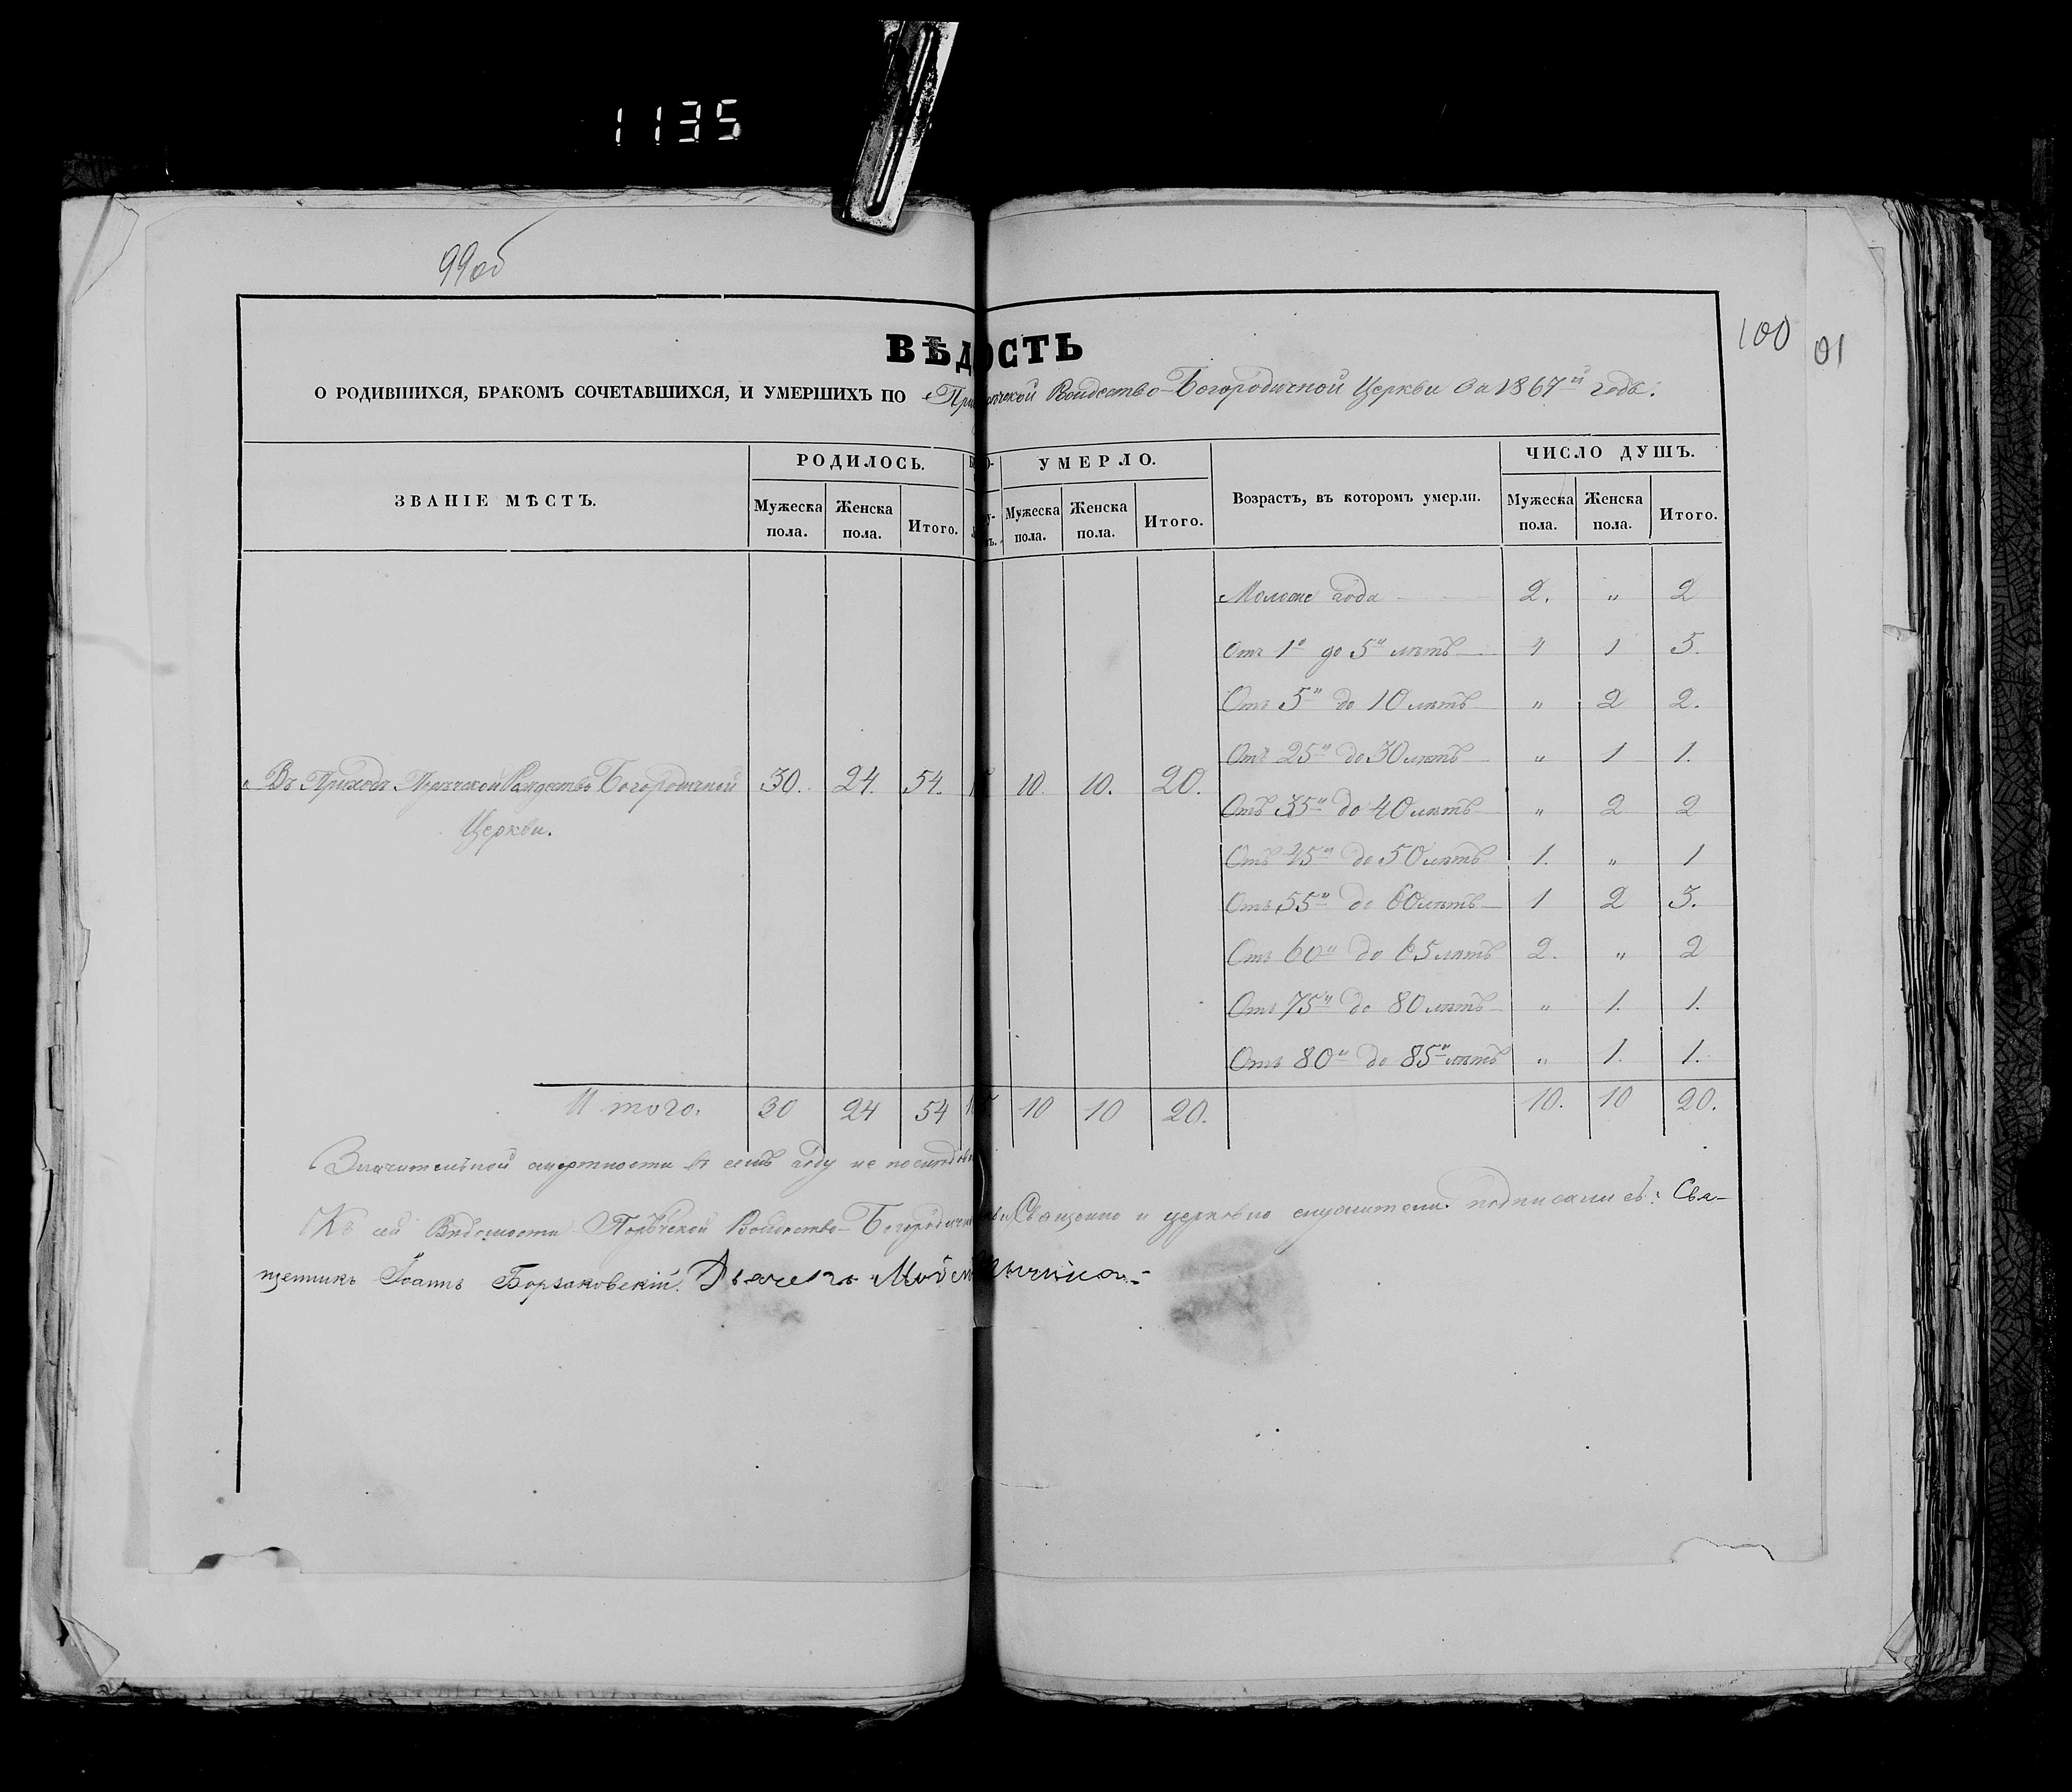 1135
99об
100 01
ВѢД ОСТЬ
О РОДИВШИХСЯ, БРАКОМЪ СОЧЕТАВШИХСЯ, И УМЕРШИХЪ ПО Рождество-Богородичной Церкви за 1867й годъ.
ЗВАНІЕ МѢСТЪ. РОДИЛОСЬ. УМЕРЛО. Возрастъ, въ которомъ умерли. ЧИСЛО ДУШЪ.
Мужеска пола. Женска пола. Итого. Мужеска пола. Женска пола. Итого. Мужеска пола. Женска пола. Итого.
Моложе года 2. " 2
Отъ 1го до 5и лѣтъ 4 1 5.
Отъ 5и до 10 лѣтъ " 2 2.
Отъ 25и до 30 лѣтъ " 1 1.
Въ Приходѣ Рождество Богородичной 30. 24. 54. 10. 10. 20.
Церкви.
Отъ 35и до 40 лѣтъ " 2 2
Отъ 45и до 50 лѣтъ 1. " 1
Отъ 55и до 60 лѣтъ 1 2 3.
Отъ 60и до 65 лѣтъ 2. " 2
Отъ 75и до 80 лѣтъ " 1. 1.
Отъ 80и до 85и лѣтъ " 1. 1.
Итого. 30 24 54 10 10 20. 10. 10 20.
Значительной смертности въ семъ году не
Къ сей Вѣдомости Рождество-Богородичной Священно и церковно служители подписались: Свя-
щенникъ Іоаннъ Борзаковскій. Дьячекъ